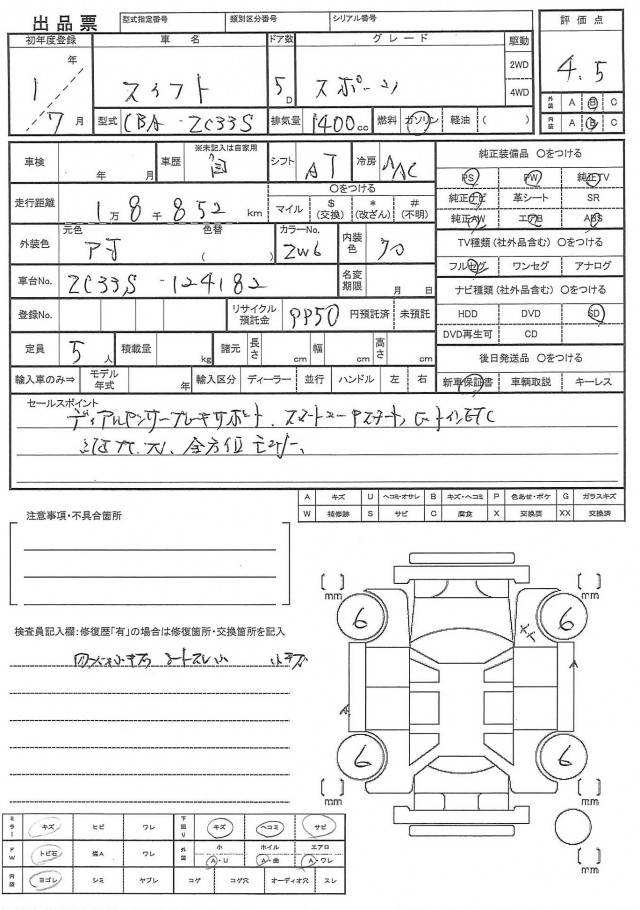 出品票 型式指定番号 類別区分番号 シリアル番号
評価点
4.5
初年度登録 車名 ドア数 グレード 駆動
1年 7月 スイフト 5D スポーツ 2WD 4WD
型式 CBA-ZC33S 排気量 1400cc 燃料 ガソリン 軽油 ( )
外装 A B C
内装 A B C
車検 年 月 車歴 ※未記入は自家用 自 シフト AT 冷房 AAC
純正装備品 〇をつける
PS PW 純正TV
純正ナビ 革シート SR
純正AW エアB ABS
走行距離 1万8千852km 〇をつける マイル $(交換) *(改ざん) #(不明)
外装色 元色 色替 ( ) カラーNo. ZW6 内装色 クロ
TV種類(社外品含む) 〇をつける
フルセグ ワンセグ アナログ
車台No. ZC33S-124182 名変期限 月 日
ナビ種類(社外品含む) 〇をつける
HDD DVD SD
DVD再生可 CD
登録No. リサイクル預託金 PP50 円預託済 未預託
定員 5人 積載量 kg 諸元 長さ cm 幅 cm 高さ cm
後日発送品 〇をつける
新車保証書 車輌取説 キーレス
輸入車のみ⇒ モデル年式 年 輸入区分 ディーラー 並行 ハンドル 左 右
セールスポイント
ETC
全方位モニター
A キズ U ヘコミ・オサレ B キズ・ヘコミ P 色あせ・ボケ G ガラスキズ
W 補修跡 S サビ C 腐食 X 交換要 XX 交換済
注意事項・不具合箇所
検査員記入欄:修復歴「有」の場合は修復箇所・交換箇所を記入
[ ] mm [ ] mm
6 6
A
A
6 6
[ ] mm [ ] mm
[ ] mm
ミラー キズ ヒビ ワレ 下回り キズ ヘコミ サビ
FW トビ石 ワレ 外装 小 A・U ホイル A・曲 エアロ A・ワレ
内装 ヨゴレ シミ ヤブレ コゲ コゲ穴 オーディオ穴 スレ